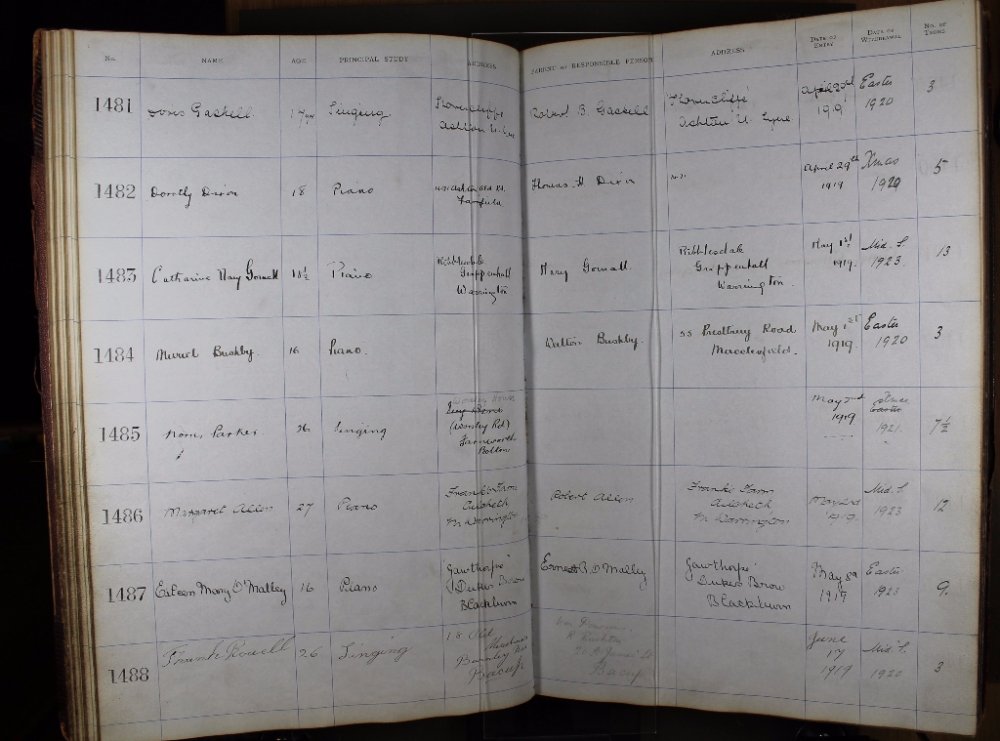 No. NAME AGE PRINCIPAL STUDY ADDRESS PARENT or RESPONSIBLE PERSON ADDRESS DATE OF ENTRY DATE OF WITHDRAWAL NO. OF TERMS
1481 Doris Gaskell. Singing
Ashton U. Lyne
Robert B. Gaskell
Ashton U. Lyne
April
Easter 1920
3
1482 Dorothy Dixon 18 Piano
Thomas Dixon
April 29th 1919
Xmas 1920
5
1483 Catharine Mary Gornall Piano
Ribblesdale
Grappenhall
Warrington
Harry Gornall
Ribblesdale
Grappenhall
Warrington.
May 1st 1919.
Mid. S. 1923
13
1484 Muriel Bushby. 16 Piano.
Walton Bushby.
55 Prestbury Road
Macclesfield.
May 1st 1919.
Easter 1920
3
1485 Parkes 26 Singing
(Worsley Rd)
Farnworth
Bolton
May 2nd 1919
Easter
1921.
7½
1486 Margaret Allen 27 Piano
Culcheth
Nr Warrington
Robert Allen
Culcheth
Nr Warrington
May 2nd 1919
Mid. S. 1923
12
1487 Eileen Mary O'Malley 16 Piano
'Gawthorpe'
Dukes Brow
Blackburn
Ernest B. O'Malley
'Gawthorpe'
Dukes Brow
Blackburn
May 8th 1919
Easter
9.
1488 Frank Rowell 26 Singing
18 Old
Burnley Rd
Bacup
Bacup
June 17 1919
Mid. S. 1920
3